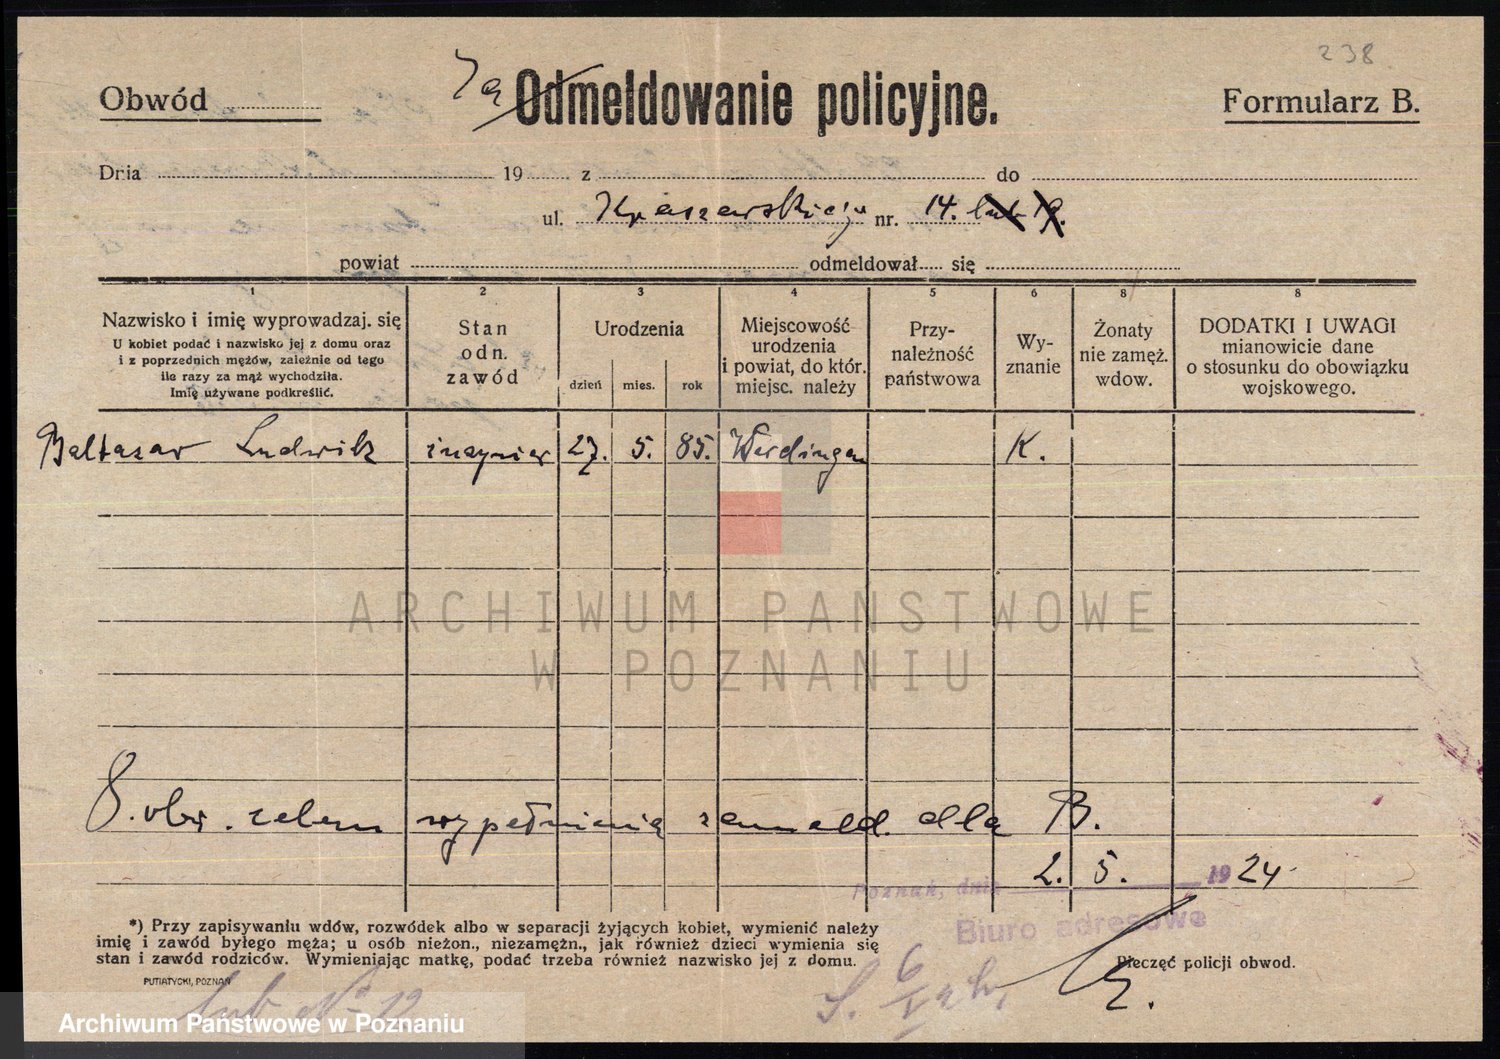 238.
Obwód
Za Odmeldowanie policyjne.
Formularz B.
Dnia 19 z do
ul. Kraszewskiego nr. 14. lub 19.
powiat odmeldował się
1 2 3 4 5 6 8 8
Nazwisko i imię wyprowadzaj. się
U kobiet podać i nazwisko jej z domu oraz
i z poprzednich mężów, zależnie od tego
ile razy za mąż wychodziła.
Imię używane podkreślić.
Stan
odn.
zawód
Urodzenia
dzień mies. rok
Miejscowość
urodzenia
i powiat, do któr.
miejsc. należy
Przy-
należność
państwowa
Wy-
znanie
Żonaty
nie zamęż.
wdow.
DODATKI I UWAGI
mianowicie dane
o stosunku do obowiązku
wojskowego.
Baltazar Ludwik inżynier 27. 5. 85. Werdingen K.
ARCHIWUM PAŃSTWOWE
W POZNANIU
8. obw. celem wypełnienia zameld. dla B.
Poznań, dnia 2. 5. 1924
Biuro adresowe
*) Przy zapisywaniu wdów, rozwódek albo w separacji żyjących kobiet, wymienić należy
imię i zawód byłego męża; u osób nieżon., niezamężn., jak również dzieci wymienia się
stan i zawód rodziców. Wymieniając matkę, podać trzeba również nazwisko jej z domu.
Pieczęć policji obwod.
PUTIATYCKI, POZNAŃ
lub No 12
Archiwum Państwowe w Poznaniu